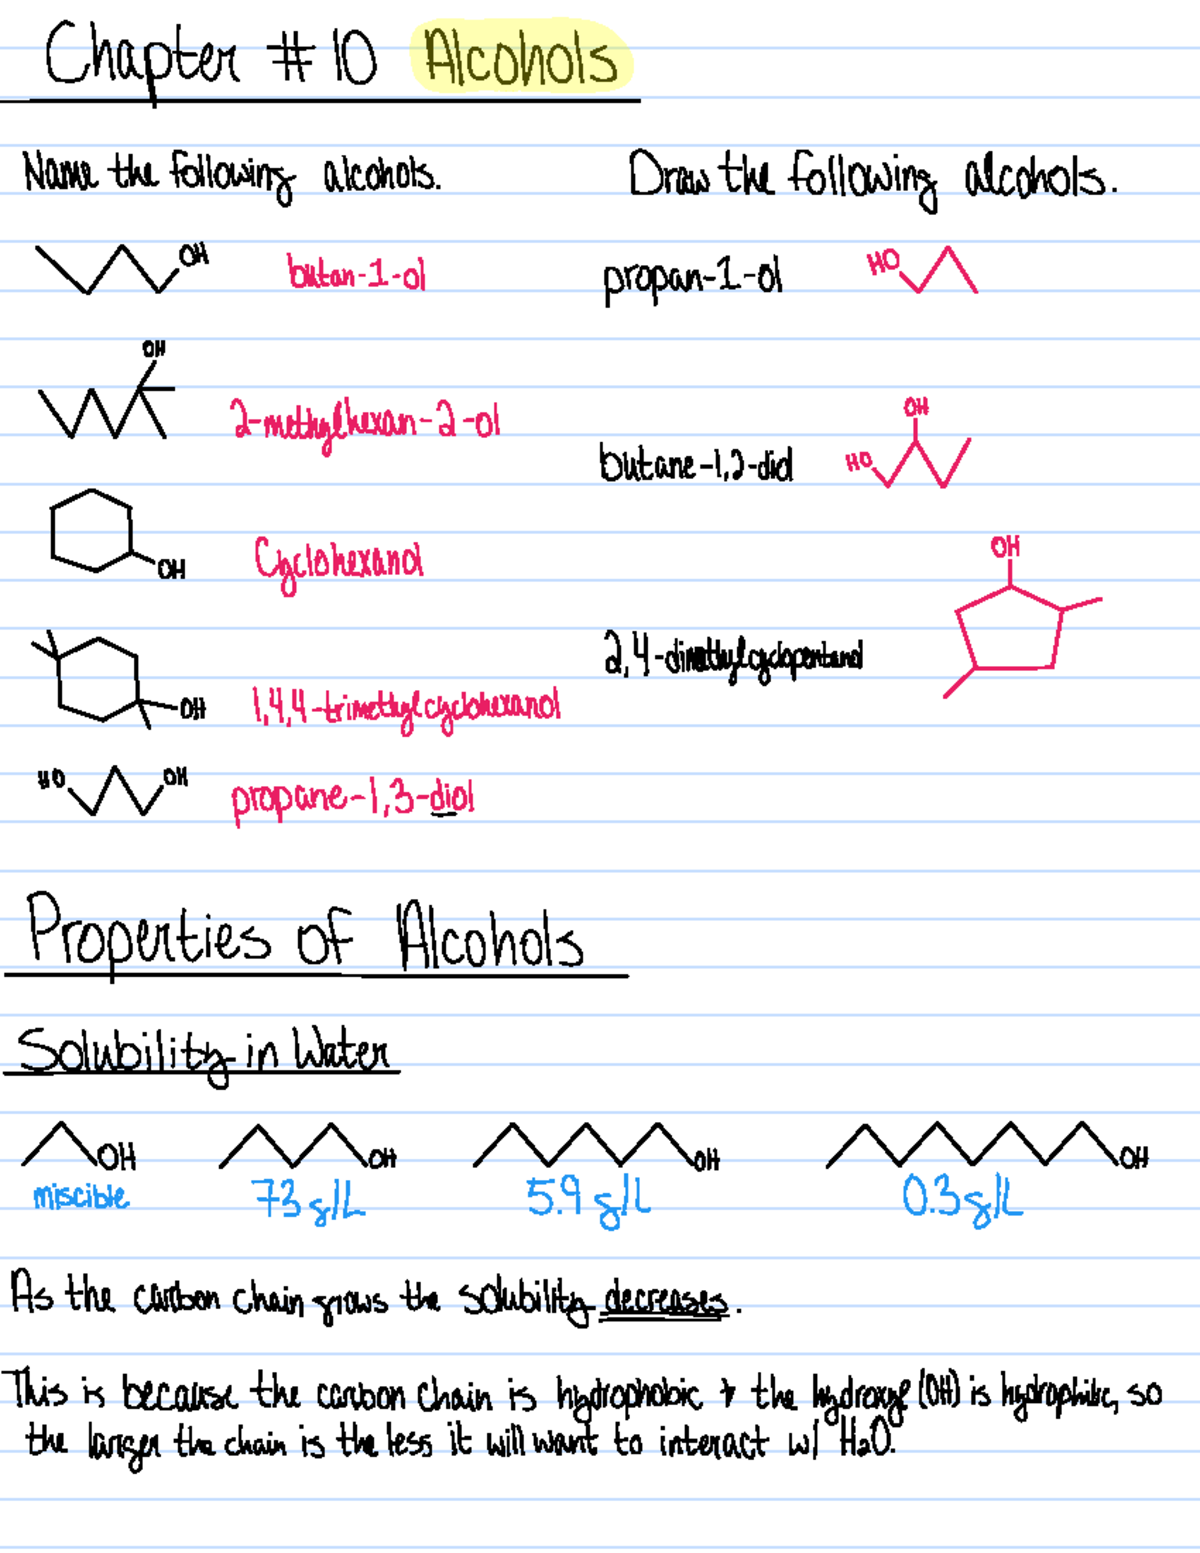 Chapter #10 Alcohols
Name the following alcohols.
OH butan-1-ol
OH
2-methylhexan-2-ol
OH Cyclohexanol
OH 1,4,4-trimethylcyclohexanol
HO OH propane-1,3-diol
Draw the following alcohols.
propan-1-ol HO
OH
butane-1,2-diol HO
OH
2,4-dimethylcyclopentanol
Properties of Alcohols
Solubility in Water
OH OH OH OH
miscible 73 g/L 5.9 g/L 0.3 g/L
As the carbon chain grows the solubility decreases.
This is because the carbon chain is hydrophobic & the hydroxyl (OH) is hydrophilic, so
the larger the chain is the less it will want to interact w/ H₂O.